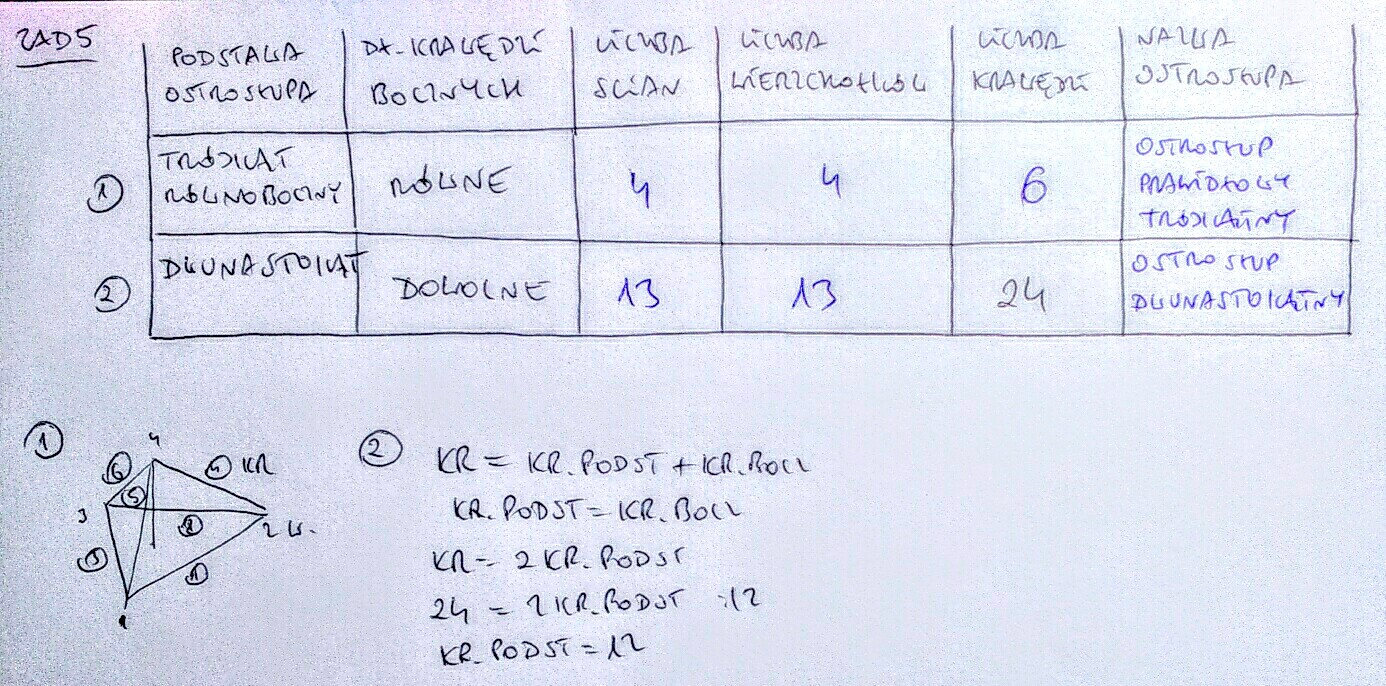 ZAD 5
PODSTAWA OSTROSŁUPA
DŁ. KRAWĘDZI BOCZNYCH
LICZBA ŚCIAN
LICZBA WIERZCHOŁKÓW
LICZBA KRAWĘDZI
NAZWA OSTROSŁUPA
① TRÓJKĄT RÓWNOBOCZNY
RÓWNE
4
4
6
OSTROSŁUP PRAWIDŁOWY TRÓJKĄTNY
② DWUNASTOKĄT
DOWOLNE
13
13
24
OSTROSŁUP DWUNASTOKĄTNY
①
4
⑥ ④ KR
⑤
3
② 2 W.
③
①
1
② KR = KR. PODST + KR. BOCZ
KR. PODST = KR. BOCZ
KR = 2 KR. PODST
24 = 2 KR. PODST :12
KR. PODST = 12